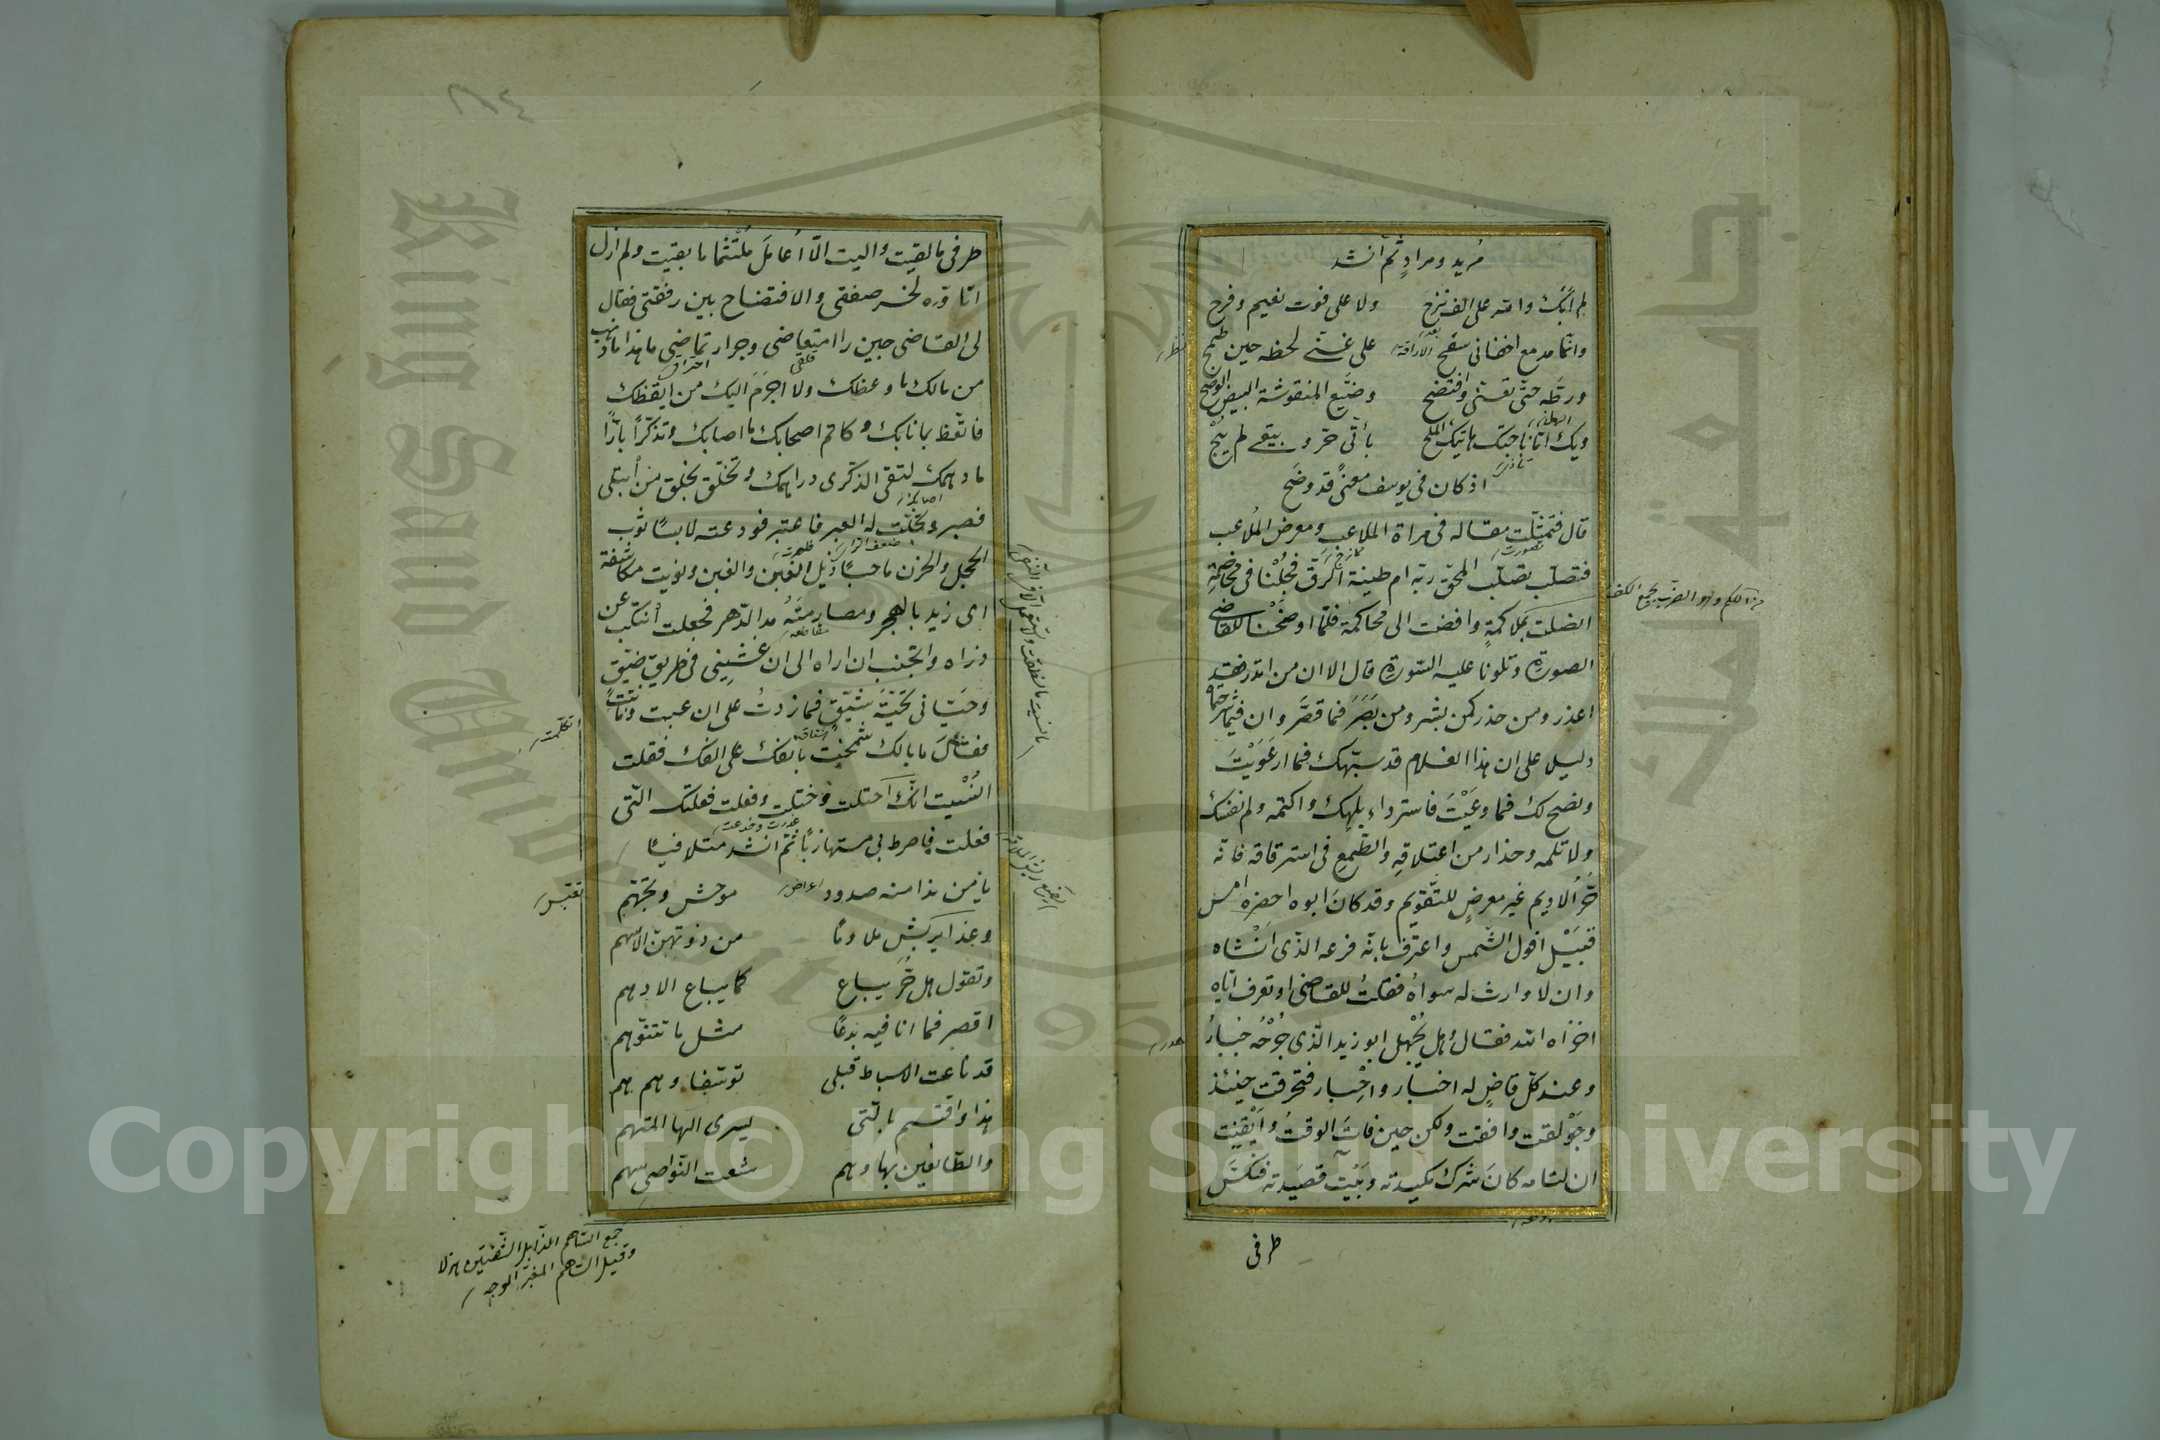 مريد ومراد ثم انشد
لم ابك والله على الف نزح ولا على فوت نعيم وفرح
وانما مدمع اجفاني سفح على غبي لحظه حين طمح
ورطه حتى تعنى وافتضح وضيع المنقوشة البيض الوضح
ويك اما ناجتك هاتيك الملح بأنى حر وبيعي لم يبح
اذ كان في يوسف معنى قد وضح
قال فتمثلت مقاله في مراة الملاعب ومعرض الملاعب
فتصلب تصلب المحق وتبرا من طينة الرق فجلنا في مخاصمة
اتصلت بملاكمة وافضت الى محاكمة فلما اوضحنا للقاضي
الصورة وتلونا عليه السورة قال الا ان من انذر فقد
اعذر ومن حذر كمن بشر ومن بصر فما قصر وان فيما شرحتماه
دليل على ان هذا الغلام قد نبهك فما ارعويت
ونصح لك فما وعيت فاستر داء بلهك واكتمه ولم نفسك
ولا تلمه وحذار من اعتلاقه والطمع في استرقاقه فانه
حر الاديم غير معرض للتقويم وقد كان ابوه احضره امس
قبيل افول الشمس واعترف بانه فرعه الذي انشاه
وان لا وارث له سواه فقلت للقاضي او تعرف اباه
اخزاه الله فقال وهل يجهل ابو زيد الذي جرحه جبار
وعند كل قاض له اخبار واخبار فتحرقت حينئذ
وحولقت وافقت ولكن حين فات الوقت وايقنت
ان لثامه كان شرك مكيدته وبيت قصيدته فنكس
طرفي
طرفي ما لقيت واليت الا اعامل ملتثما ما بقيت ولم ازل
اتاوه لخسر صفقتي والافتضاح بين رفقتي فقال
لي القاضي حين راى امتعاضي وحرار تماضي ما هذا ما ذهب
من مالك ما وعظك ولا اجرم اليك من ايقظك
فاتعظ بما نابك وكاتم اصحابك ما اصابك وتذكر ابدا
ما دهمك لتقي الذكرى دراهمك وتخلق بخلق من ابتلي
فصبر وتجلت له العبر فاعتبر فودعته لابسا ثوب
الخجل والحزن ساحبا ذيل الغبن والغبن ونويت مكاشفة
ابي زيد بالهجر ومصارمته يد الدهر فجعلت اتنكب عن
ذراه واتجنب ان اراه الى ان غشيني في طريق ضيق
وحياني تحية شيق فما زدت على ان عبست وما نبست
فقال ما بالك شمخت بانفك على الفك فقلت
انسيت انك احتلت وختلت وفعلت فعلتك التي
فعلت فاضرط بي مستهازيا ثم انشد متلافيا
يا من بدا منه صدود موحش وتجهم
وغدا يريش ملاوما من دونهن الاسهم
وتقول هل حر يباع كما يباع الادهم
اقصر فما انا فيه بدعا مثل ما تتوهم
قد باعت الاسباط قبلي يوسفا وهم هم
هذا واقسم بالتي يسري اليها المتهم
والطائفين بها وهم شعث النواصي سهم
جمع الساهم الذابل الشفتين هزلا
وقيل الساهم المغبر الوجه
King Saud University
جامعة الملك سعود
1957
Copyright © King Saud University